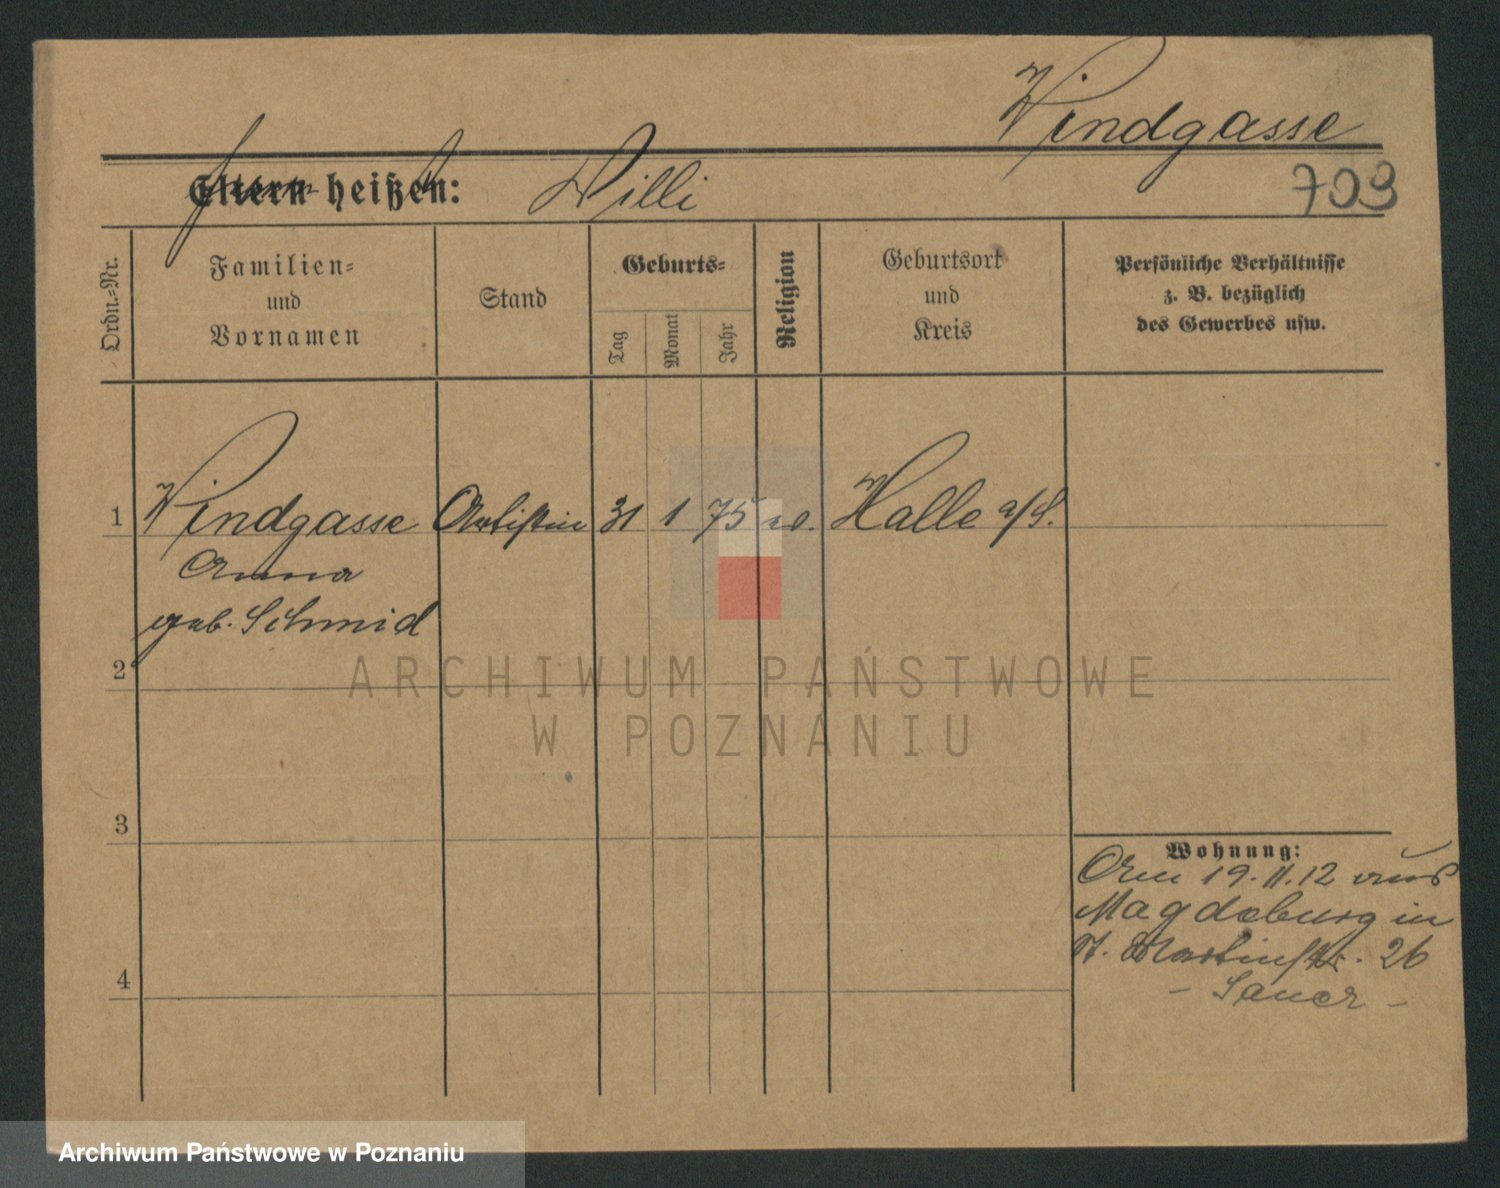 Windgasse
Eltern heißen: Willi
703
Ordn.-Nr.
Familien-
und
Vornamen
Stand
Geburts-
Tag
Monat
Jahr
Religion
Geburtsort
und
Kreis
Persönliche Verhältnisse
z. B. bezüglich
des Gewerbes usw.
1 Windgasse Artistin 31 1 75 ev. Halle a/S.
Anna
geb. Schmid
2
3
4
Wohnung:
Am 19.11.12 aus
Magdeburg in
St. Martinstr. 26
- Sauer -
ARCHIWUM PAŃSTWOWE
W POZNANIU
Archiwum Państwowe w Poznaniu